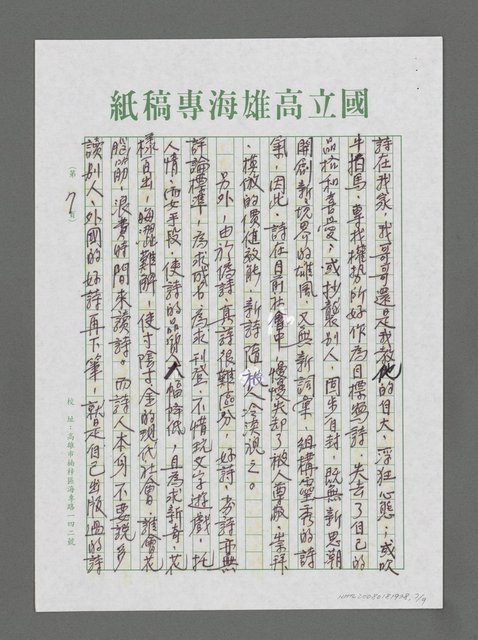 國立高雄海專稿紙
詩在我家，我哥哥還是我教他的自大，浮狂心態；或吹
牛拍馬，專找權勢所好作為目標寫詩，失去了自己的
品格和喜愛；或抄襲別人，固步自封，既無新思潮
開創新境界的雄風，又無新詞彙，組構靈秀的詩
氣，因此，詩在目前社會中，慢慢失却了被人尊敬、崇拜
、模倣的價值效能，新詩隨被人冷漠視之。
另外，由於偽詩、真詩很難區分，好詩、劣詩亦無
評論標準，為求成名，為求刊登，不惜玩文字遊戲，托
人情，耍手段，使詩的品質大幅降低，且為求新奇，花
樣百出，晦澀難解，使寸陰寸金的現代社會，誰會花
腦筋，浪費時間來讀詩。而詩人本身，不要說多
讀別人、外國的好詩再下筆，就是自己出版過的詩
（第7頁）
校址：高雄市楠梓區海專路一四二號